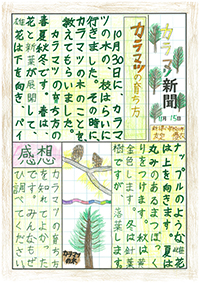 カラマツ新聞
11月15日
カラマツの育ち方
10月30日に、カラマ
ツの木の、枝はらいに
行きました。その時に
カラマツの木のことを
教えてもらいました。
カラマツの育ち方の
春夏秋冬です。春は花
と新葉が展開して、雄
花は下を向き、パイ
ナップルのような雌花
は上を向きます。夏は
丸みのあるまつぼっく
りをつけます。秋は黄
金色します。冬は針葉
樹ですが、落葉します。
感想
カラマツの育ち方
を知れてよかった
です。みんなもぜ
ひ調べてください。
カラマツの木